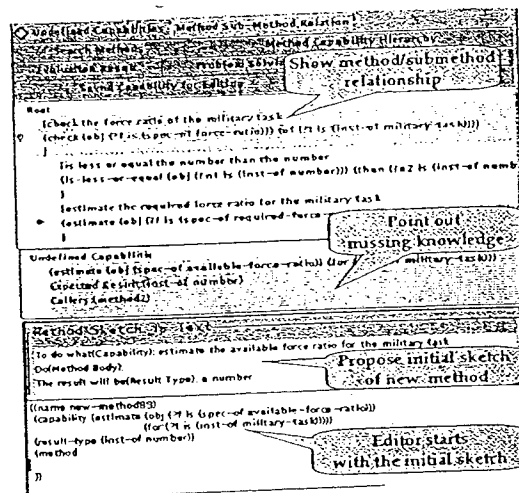 Undefined Capabilities Method Sub-Method Relation
Search Method Method Capability Hierarchy
Show method/submethod
relationship
Root
(check the force ratio of the military task
(check (obj (?f is (spec-of force-ratio))) (of (?t is (inst-of military-task))))
)
(is less or equal the number than the number
(is-less-or-equal (obj (?n1 is (inst-of number))) (then (?n2 is (inst-of numb
)
(estimate the required force ratio for the military task
(estimate (obj (?f is (spec-of required-force-
)
Point out
missing knowledge
Undefined Capabilities
(estimate (obj (spec-of available-force-ratio)) (for military-task)))
Expected Result:(inst-of number)
Callers:(method2)
Method Sketch in Text
To do what(Capability): estimate the available force ratio for the military task
Do(Method Body):
The result will be(Result Type): a number
Propose initial sketch
of new method
((name new-method89)
(capability (estimate (obj (?f is (spec-of available-force-ratio))
(for (?t is (inst-of military-task)))))
(result-type (inst-of number))
(method
))
Editor starts
with the initial sketch